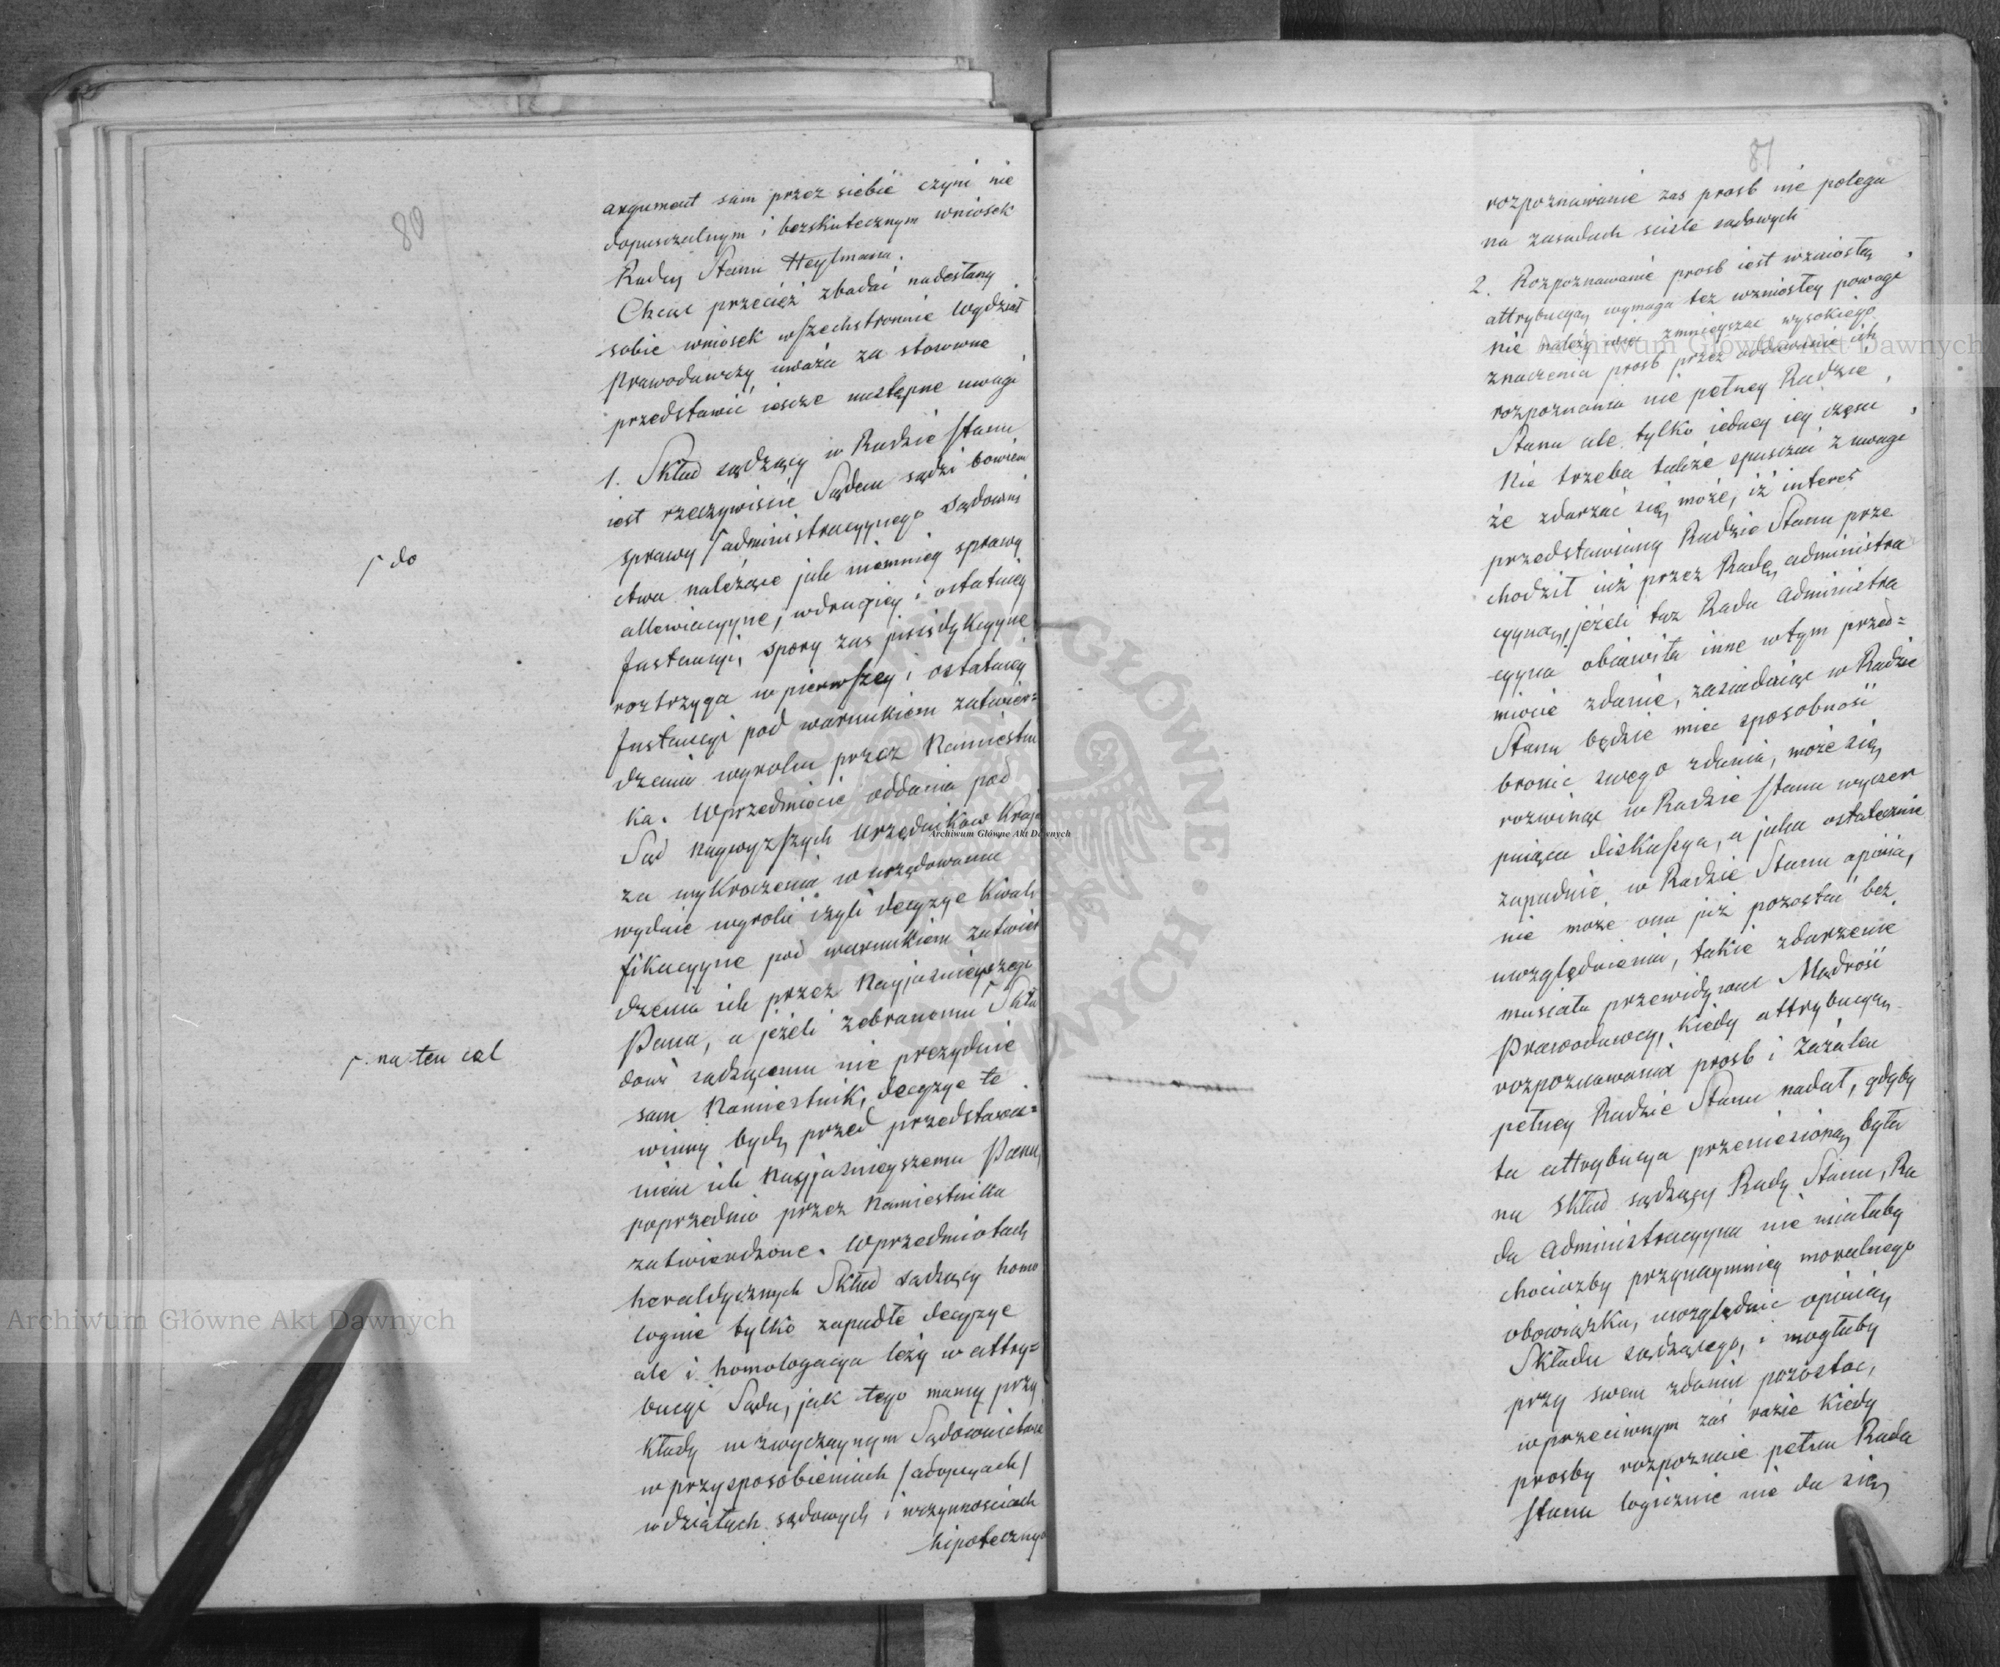 80
argument sam przez siebie czyni nie
dopuszczalnym i bezskutecznym wniosek
Radcy Stanu Heylmana.
Chcąc przecięż zbadać nadesłany
sobie wniosek wszechstronnie Wydział
Prawodawczy uważa za stosowne
przedstawić ieszcze następne uwagi
1. Skład sądzący w Radzie Stanu
iest rzeczywiście Sądem sądzi bowiem
sprawy ſ administracyynego sądowni
ſ do
ctwa należące jak niemniey sprawy
allewiacyyne, w drugiey i ostatniey
Instancyi, spory zas jurisdykcyyne
roztrzyga w pierwszey i ostatniey
Instancyi pod warunkiem zatwier=
dzenia wyroku przez Namiestni
ka. W przedmiocie oddania pod
Sąd naywyższych Urzędników Kraju
za wykroczenia w urzędowaniu
wydaie wyroki czyli decyzye kwali
fikacyyne pod warunkiem zatwier
dzenia ich przez Nayjaśnieyszego
Pana, a jeżeli zebranemu ſ Skła
ſ na ten cel
dowi sądzącemu nie prezyduie
sam Namiestnik, decyzye te
winny bydź przed przedstawie=
niem ich Nayjaśnieyszemu Panu,
poprzednio przez Namiestnika
zatwierdzone. W przedmiotach
heraldycznych Skład sądzący homo
loguie tylko zapadłe decyzye
ale i homologacya leży w attry=
bucyi Sądu, jak tego mamy przy
kłady w zwyczaynym Sądownictwie
w przysposobieniach /adopcyach/
w działach sądowych i w czynnościach
hipotecznych
81
rozpoznawanie zas prosb nie polega
na zasadach scisle sądowych
2. Rozpoznawanie prosb iest wzniosłą
attrybucyą, wymaga też wzniosłey powagi
nie należy więc zmnieyszac wysokiego
znaczenia prosb przez oddawanie ich
rozpoznania nie pełney Radzie
Stanu ale tylko iedney iey części
Nie trzeba także spuszczać z uwagi
że zdarzać się może, iż interes
przedstawiany Radzie Stanu prze
chodził iuż przez Radę administra
cyyną, jeżeli taż Rada Administra
cyyna obiawiła inne w tym przed=
miocie zdanie, zasiadając w Radzie
Stanu będzie miec sposobność
bronic swego zdania, może się
rozwinąć w Radzie Stanu wyczer
puiąca diskussya, a jaka ostatecznie
zapadnie w Radzie Stanu opinia,
nie może ona już pozostać bez
uwzględnienia, takie zdarzenie
musiała przewidywac Mądrość
Prawodawcy, kiedy attrybucyą
rozpoznawania prosb i zażaleń
pełney Radzie Stanu nadał, gdyby
ta attrybucya przeniesioną była
na Skład sądzący Rady Stanu, Ra
da Administracyyna nie miałaby
chociażby przynaymniey moralnego
obowiązku, uwzględnić opinią
Składu sądzącego, i mogłaby
przy swem zdaniu pozostac,
w przeciwnym zaś razie kiedy
prosby rozpoznaie pełna Rada
Stanu logicznie nie da się
Archiwum Główne Akt Dawnych
Archiwum Główne Akt Dawnych
Archiwum Główne Akt Dawnych